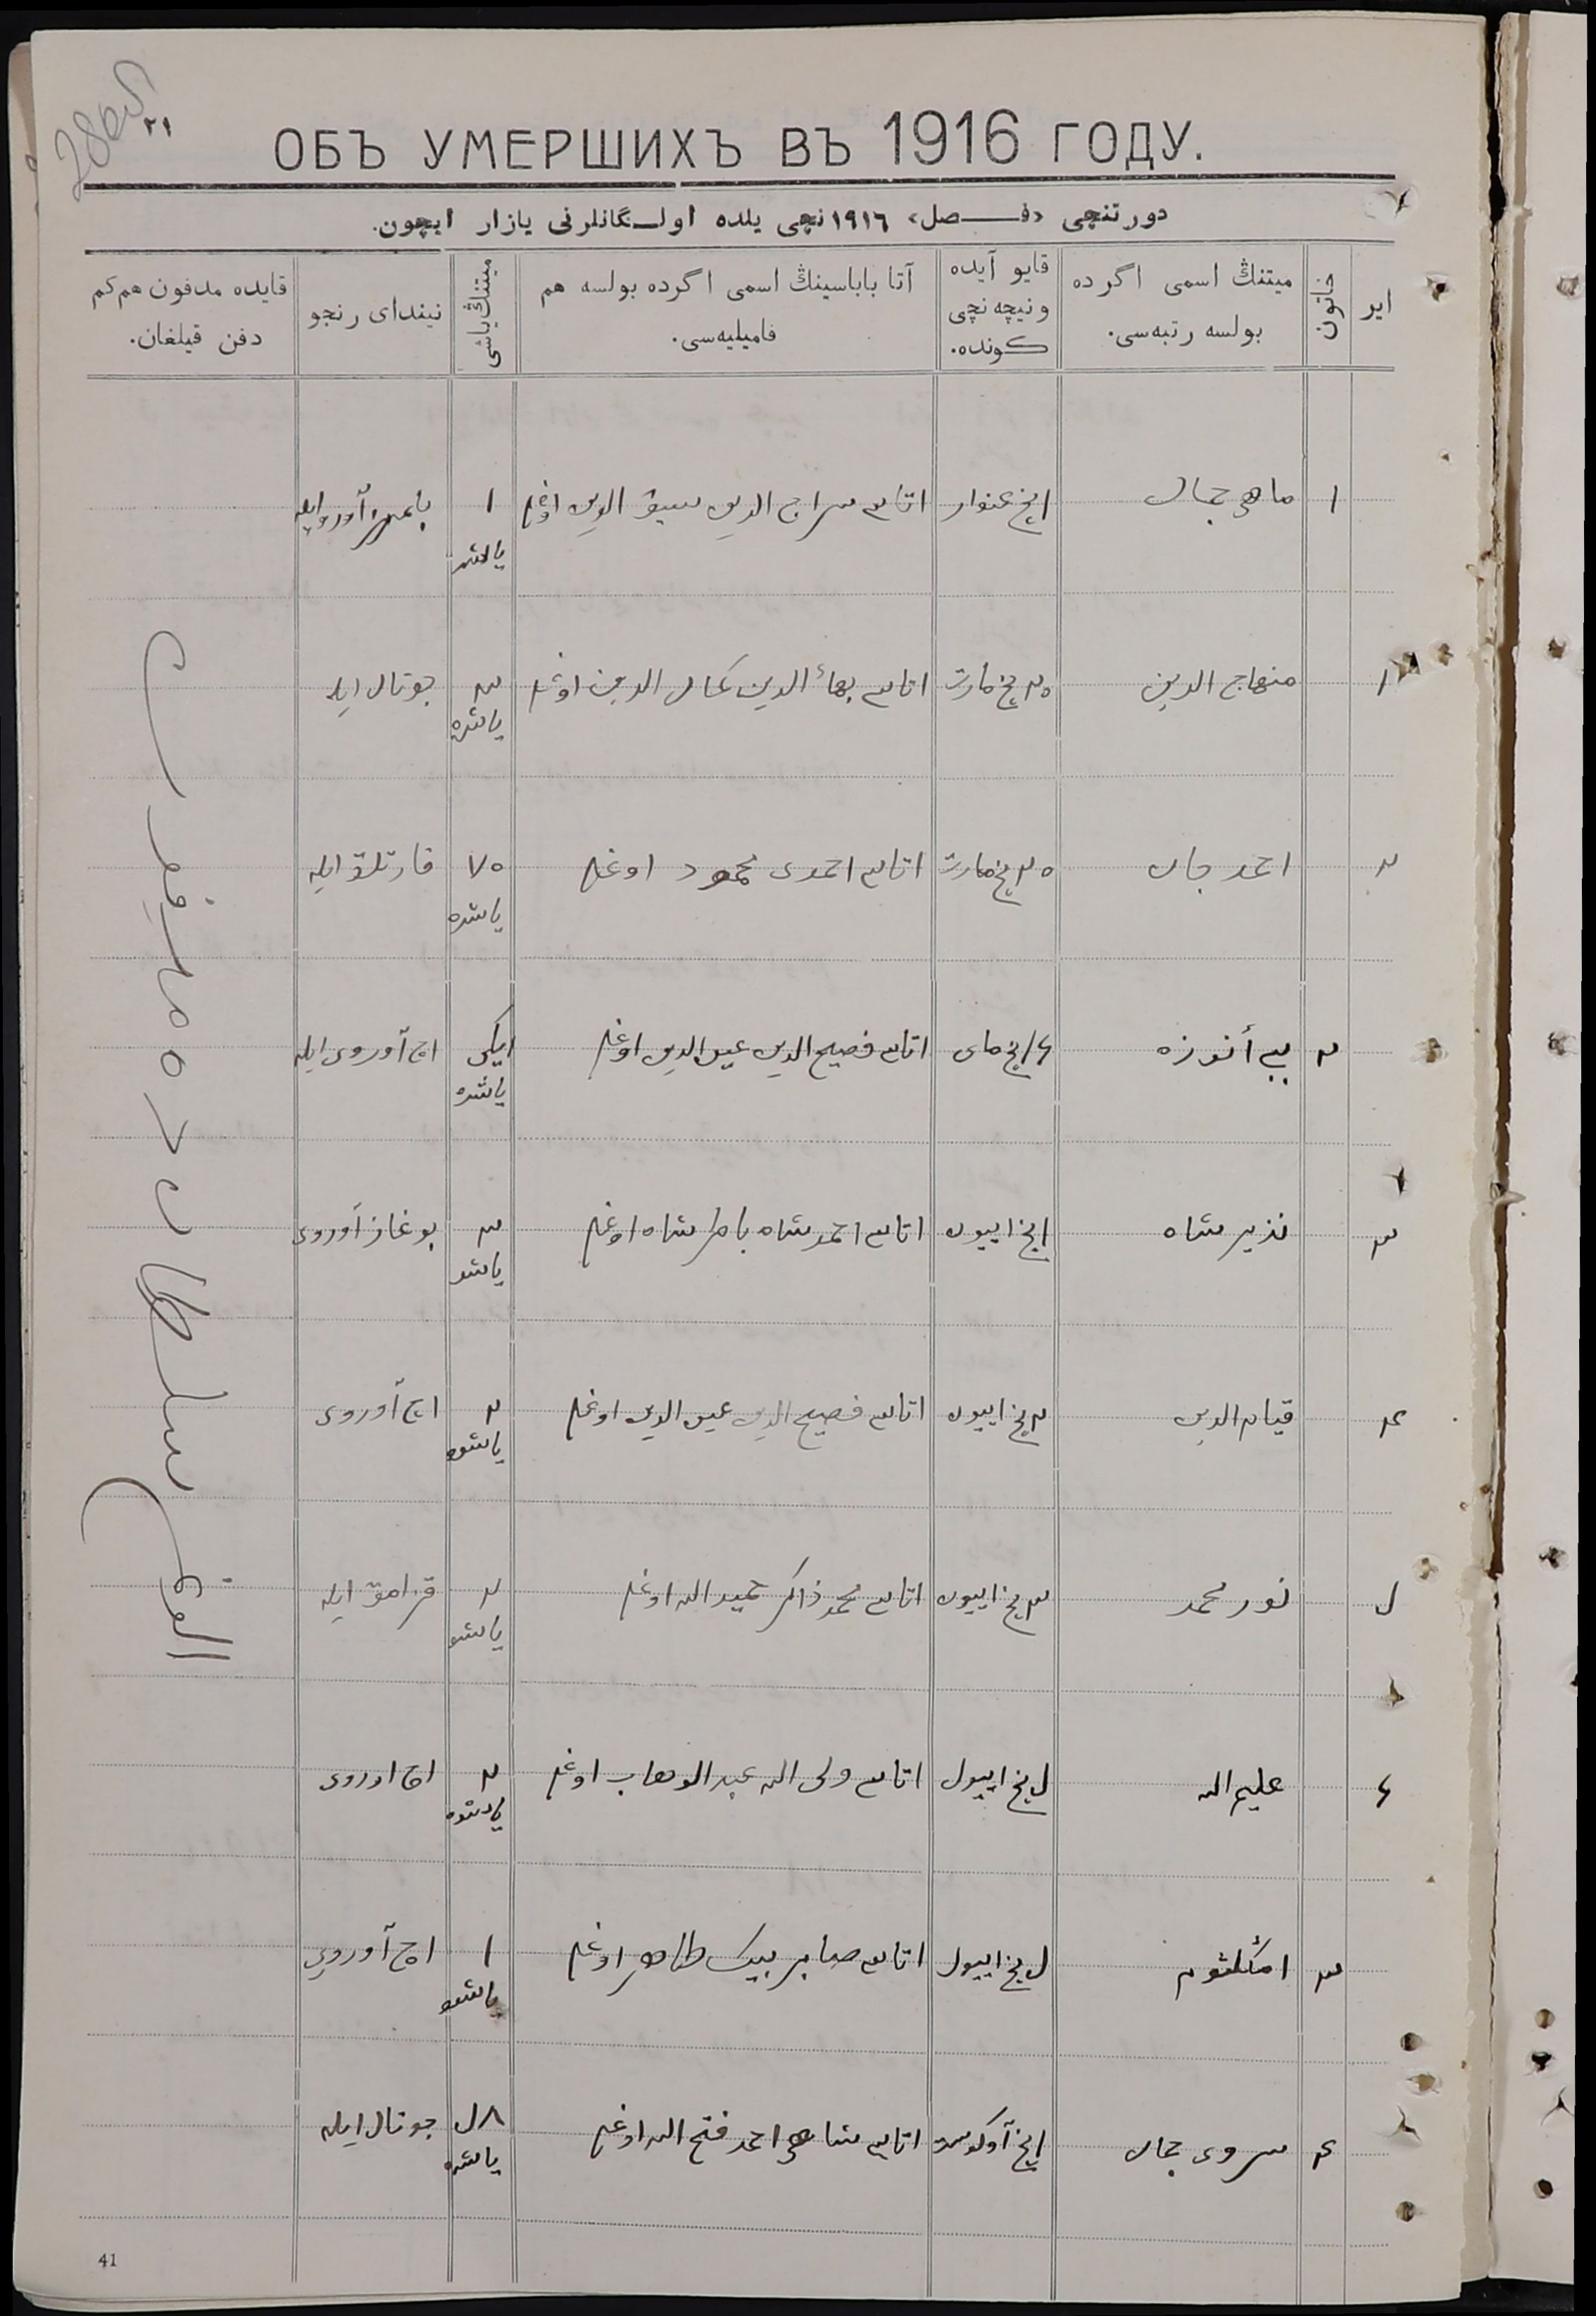 286об
٢١
ОБЪ УМЕРШИХЪ ВЪ 1916 ГОДУ.
دورتنچی «فـــصل» ١٩١٦ نچی یلده اولـگانلرنی یازار ایچون.
ایر
خاتون
میتنڭ اسمی اگرده بولسه رتبه‌سی.
قایو آیده ونیچه نچی کونده.
آتا باباسینڭ اسمی اگرده بولسه هم فامیلیه‌سی.
میتنڭ یاشی
نیندای رنجو
قایده مدفون هم کم دفن قیلغان.
١ ماهی جمال ١نچی غنوار اتاسی سراج الدین سیف الدین اوغلی ١ یاشر
١ منهاج الدین ٢٥ نچی مارت اتاسی بهاء الدین کمال الدین اوغلی ٣ یاشده جوتال ایله
٢ احمد جان ٢٥ نچی مارت اتاسی احمدی محمود اوغلی ٧٠ یاشده قارتلق ایله
٢ بی أنوزه ١٤نچی مای اتاسی فصیح الدین عین الدین اوغلی ایکی یاشده اچ آوروی ایله
٣ نذیر شاه ١نچی اییون اتاسی احمد شاه اوغلی ٣ یاشده بوغاز آوروی
٤ قیام الدین ٢نچی اییون اتاسی فصیح الدین عین الدین اوغلی ٢ یاشده اچ آوروی
٥ نور محمد ٣نچی اییون اتاسی محمد ذاکر حمید الله اوغلی ٢ یاشده قزامق ایله
٦ علیم الله ٥نچی اییول اتاسی ولی الله عبد الوهاب اوغلی ٢ یاشده اچ اوروی
٣ امکلثوم ٥نچی اییول اتاسی صابر بیک طاهر اوغلی ١ یاشده اچ آوروی
٤ سروی جمال ١نچی آوگوست اتاسی شاهی احمد فتح الله اوغلی ٥٨ یاشده جوتال ایله
41